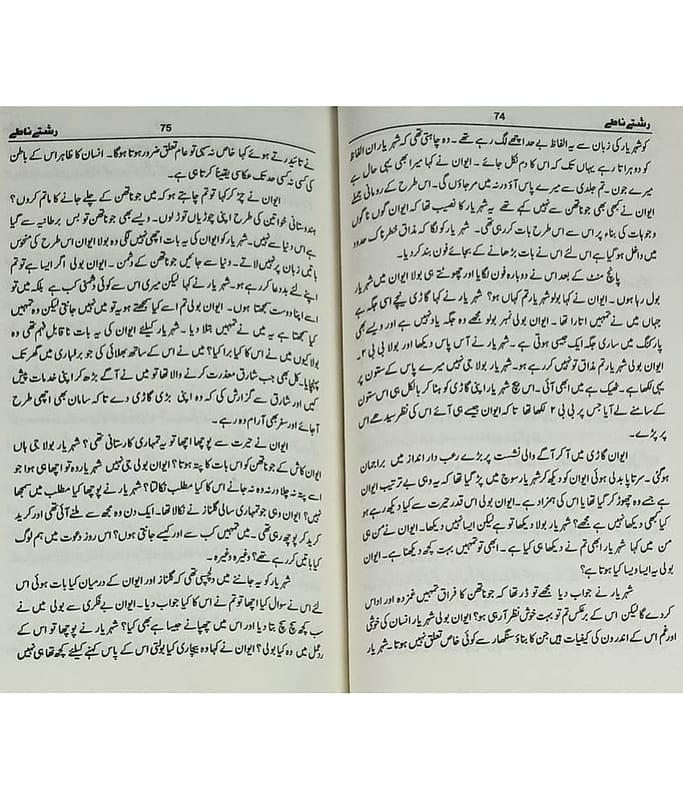 رشتے ناطے
74
کو شہریار کی زبان سے یہ الفاظ بے حد اچھے لگ رہے تھے۔ وہ چاہتی تھی کہ شہریار ان الفاظ
کو دوہراتا رہے یہاں تک کہ اس کا دم نکل جائے۔ ایوان نے کہا میرا بھی یہی حال ہے
میرے جون۔ تم جلدی سے میرے پاس آؤ ورنہ میں مر جاؤں گی۔ اس طرح کے رومانی جملے
ایوان نے کبھی بھی جوناتھن سے نہیں کہے تھے یہ شہریار کا نصیب تھا کہ ایوان گوں نا گوں
وجوہات کی بناء پر اس سے اس طرح بات کر رہی تھی۔ شہریار کو لگا کہ مذاق خطرناک حدود
میں داخل ہو گیا ہے اس لئے اس نے بات بڑھانے کے بجائے فون بند کر دیا۔
پانچ منٹ کے بعد اس نے دوبارہ فون لگایا اور چھوٹتے ہی بولا ایوان میں شہریار
بول رہا ہوں۔ ایوان نے کہا بولو شہریار تم کہاں ہو؟ شہریار نے کہا گاڑی نیچے اسی جگہ ہے
جہاں میں نے تمہیں اتارا تھا۔ ایوان بولی نمبر بولو مجھے وہ جگہ یاد نہیں ہے اور ویسے بھی
پارکنگ میں ساری جگہ ایک جیسی ہوتی ہے۔ شہریار نے آس پاس دیکھا اور بولا بی بی ۲۔
ایوان بولی شہریار تم مذاق تو نہیں کر رہے ہو۔ شہریار بولا جی نہیں میرے پاس کے ستون پر
یہی لکھا ہے۔ ٹھیک ہے میں ابھی آئی۔ اس بیچ شہریار اپنی گاڑی کو ہٹا کر بالکل ہی اس ستون
کے سامنے لے آیا جس پر بی بی ۲ لکھا تھا تا کہ ایوان جیسے ہی آئے اس کی نظر سیدھے اس
پر پڑے۔
ایوان گاڑی میں آ کر آگے والی نشست پر بڑے رعب دار انداز میں براجمان
ہو گئی۔ سرتا پا بدلی ہوئی ایوان کو دیکھ کر شہریار سوچ میں پڑ گیا تھا کہ یہ وہی بے ترتیب ایوان
ہے جسے وہ چھوڑ کر گیا تھا یا اس کی ہمزاد ہے۔ ایوان بولی اس قدر حیرت سے کیا دیکھ رہے ہو
کیا کبھی دیکھا نہیں ہے مجھے؟ شہریار بولا دیکھا تو ہے لیکن ایسا نہیں دیکھا۔ ایوان نے من ہی
من میں کہا شہریار ابھی تم نے دیکھا ہی کیا ہے۔ ابھی تو تمہیں بہت کچھ دیکھنا ہے۔ ایوان
بولی یہ ایسا ویسا کیا ہوتا ہے؟
شہریار نے جواب دیا مجھے تو ڈر تھا کہ جوناتھن کا فراق تمہیں غمزدہ اور اداس
کر دے گا لیکن اس کے برعکس تم تو بہت خوش نظر آ رہی ہو؟ ایوان بولی شہریار انسان کی خوشی
اور غم اس کے اندرون کی کیفیات ہیں جن کا بناؤ سنگھار سے کوئی خاص تعلق نہیں ہوتا۔ شہریار
75
رشتے ناطے
نے تائید کرتے ہوئے کہا خاص نہ سہی تو عام تعلق ضرور ہوتا ہوگا۔ انسان کا ظاہر اس کے باطن
کی کسی نہ کسی حد تک عکاسی یقیناً کرتا ہی ہے۔
ایوان نے چڑ کر کہا تو تم چاہتے ہو کہ میں جوناتھن کے چلے جانے کا ماتم کروں؟
ہندوستانی خواتین کی طرح اپنی چوڑیاں توڑ لوں۔ ویسے بھی جوناتھن تو بس برطانیہ سے گیا
ہے اس دنیا سے نہیں۔ شہریار کو ایوان کی یہ بات اچھی نہیں لگی وہ بولا ایوان اس طرح کی منحوس
باتیں زبان پر نہیں لاتے۔ دنیا سے جائیں جوناتھن کے دشمن۔ ایوان بولی اگر ایسا ہے تو تم
اپنے لئے بددعا کر رہے ہو۔ شہریار نے کہا لیکن میری اس سے کوئی دشمنی کب ہے بلکہ میں تو
اسے اپنا دوست سمجھتا ہوں۔ ایوان بولی تم اسے کیا سمجھتے ہو یہ تو میں نہیں جانتی لیکن وہ تمہیں
کیا سمجھتا ہے یہ میں نے تمہیں بتلا دیا۔ شہریار کیلئے ایوان کی یہ بات نا قابلِ فہم تھی وہ
بولا کیوں میں نے اس کا کیا برا کیا؟ میں نے اس کے ساتھ بھلائی کی جو برفباری میں گھر تک
پہنچایا۔ کل بھی جب شارق معذرت کرنے والا تھا تو میں نے آگے بڑھ کر اپنی خدمات پیش
کیں اور شارق سے گزارش کی کہ وہ اپنی بڑی گاڑی دے تا کہ سامان بھی اچھی طرح
آ جائے اور سفر بھی آرام دہ رہے۔
ایوان نے حیرت سے پوچھا اچھا تو یہ تمہاری کارستانی تھی؟ شہریار بولا جی ہاں
ایوان کاش کے جوناتھن کو اس بات کا پتہ ہوتا؟ ایوان بولی جی نہیں شہریار وہ تو اچھا ہی ہوا جو
اسے پتہ نہ چلا ورنہ وہ نہ جانے اس کا کیا مطلب نکالتا؟ شہریار نے پوچھا کیا مطلب میں سمجھا
نہیں؟ ایوان وہی جو تمہاری سالی گلناز نے نکالا تھا۔ ایک دن وہ مجھ سے ملنے آئی تھی اور کرید
کرید کر پوچھ رہی تھی۔ میں تمہیں کب سے اور کیسے جانتی ہوں؟ اس روز دعوت میں ہم لوگ
کیا باتیں کر رہے تھے؟ وغیرہ وغیرہ۔
شہریار کو یہ جاننے میں دلچسپی تھی کہ گلناز اور ایوان کے درمیان کیا بات ہوئی اس
لئے اس نے سوال کیا اچھا تو تم نے اس کا کیا جواب دیا۔ ایوان بے فکری سے بولی میں نے
سب کچھ سچ سچ بتا دیا اور اس میں چھپانے جیسا ہے بھی کیا؟ شہریار نے پوچھا تو اس کے
ردِعمل میں وہ کیا بولی؟ ایوان نے کہا وہ بیچاری کیا بولتی اس کے پاس کہنے کیلئے کچھ تھا ہی نہیں